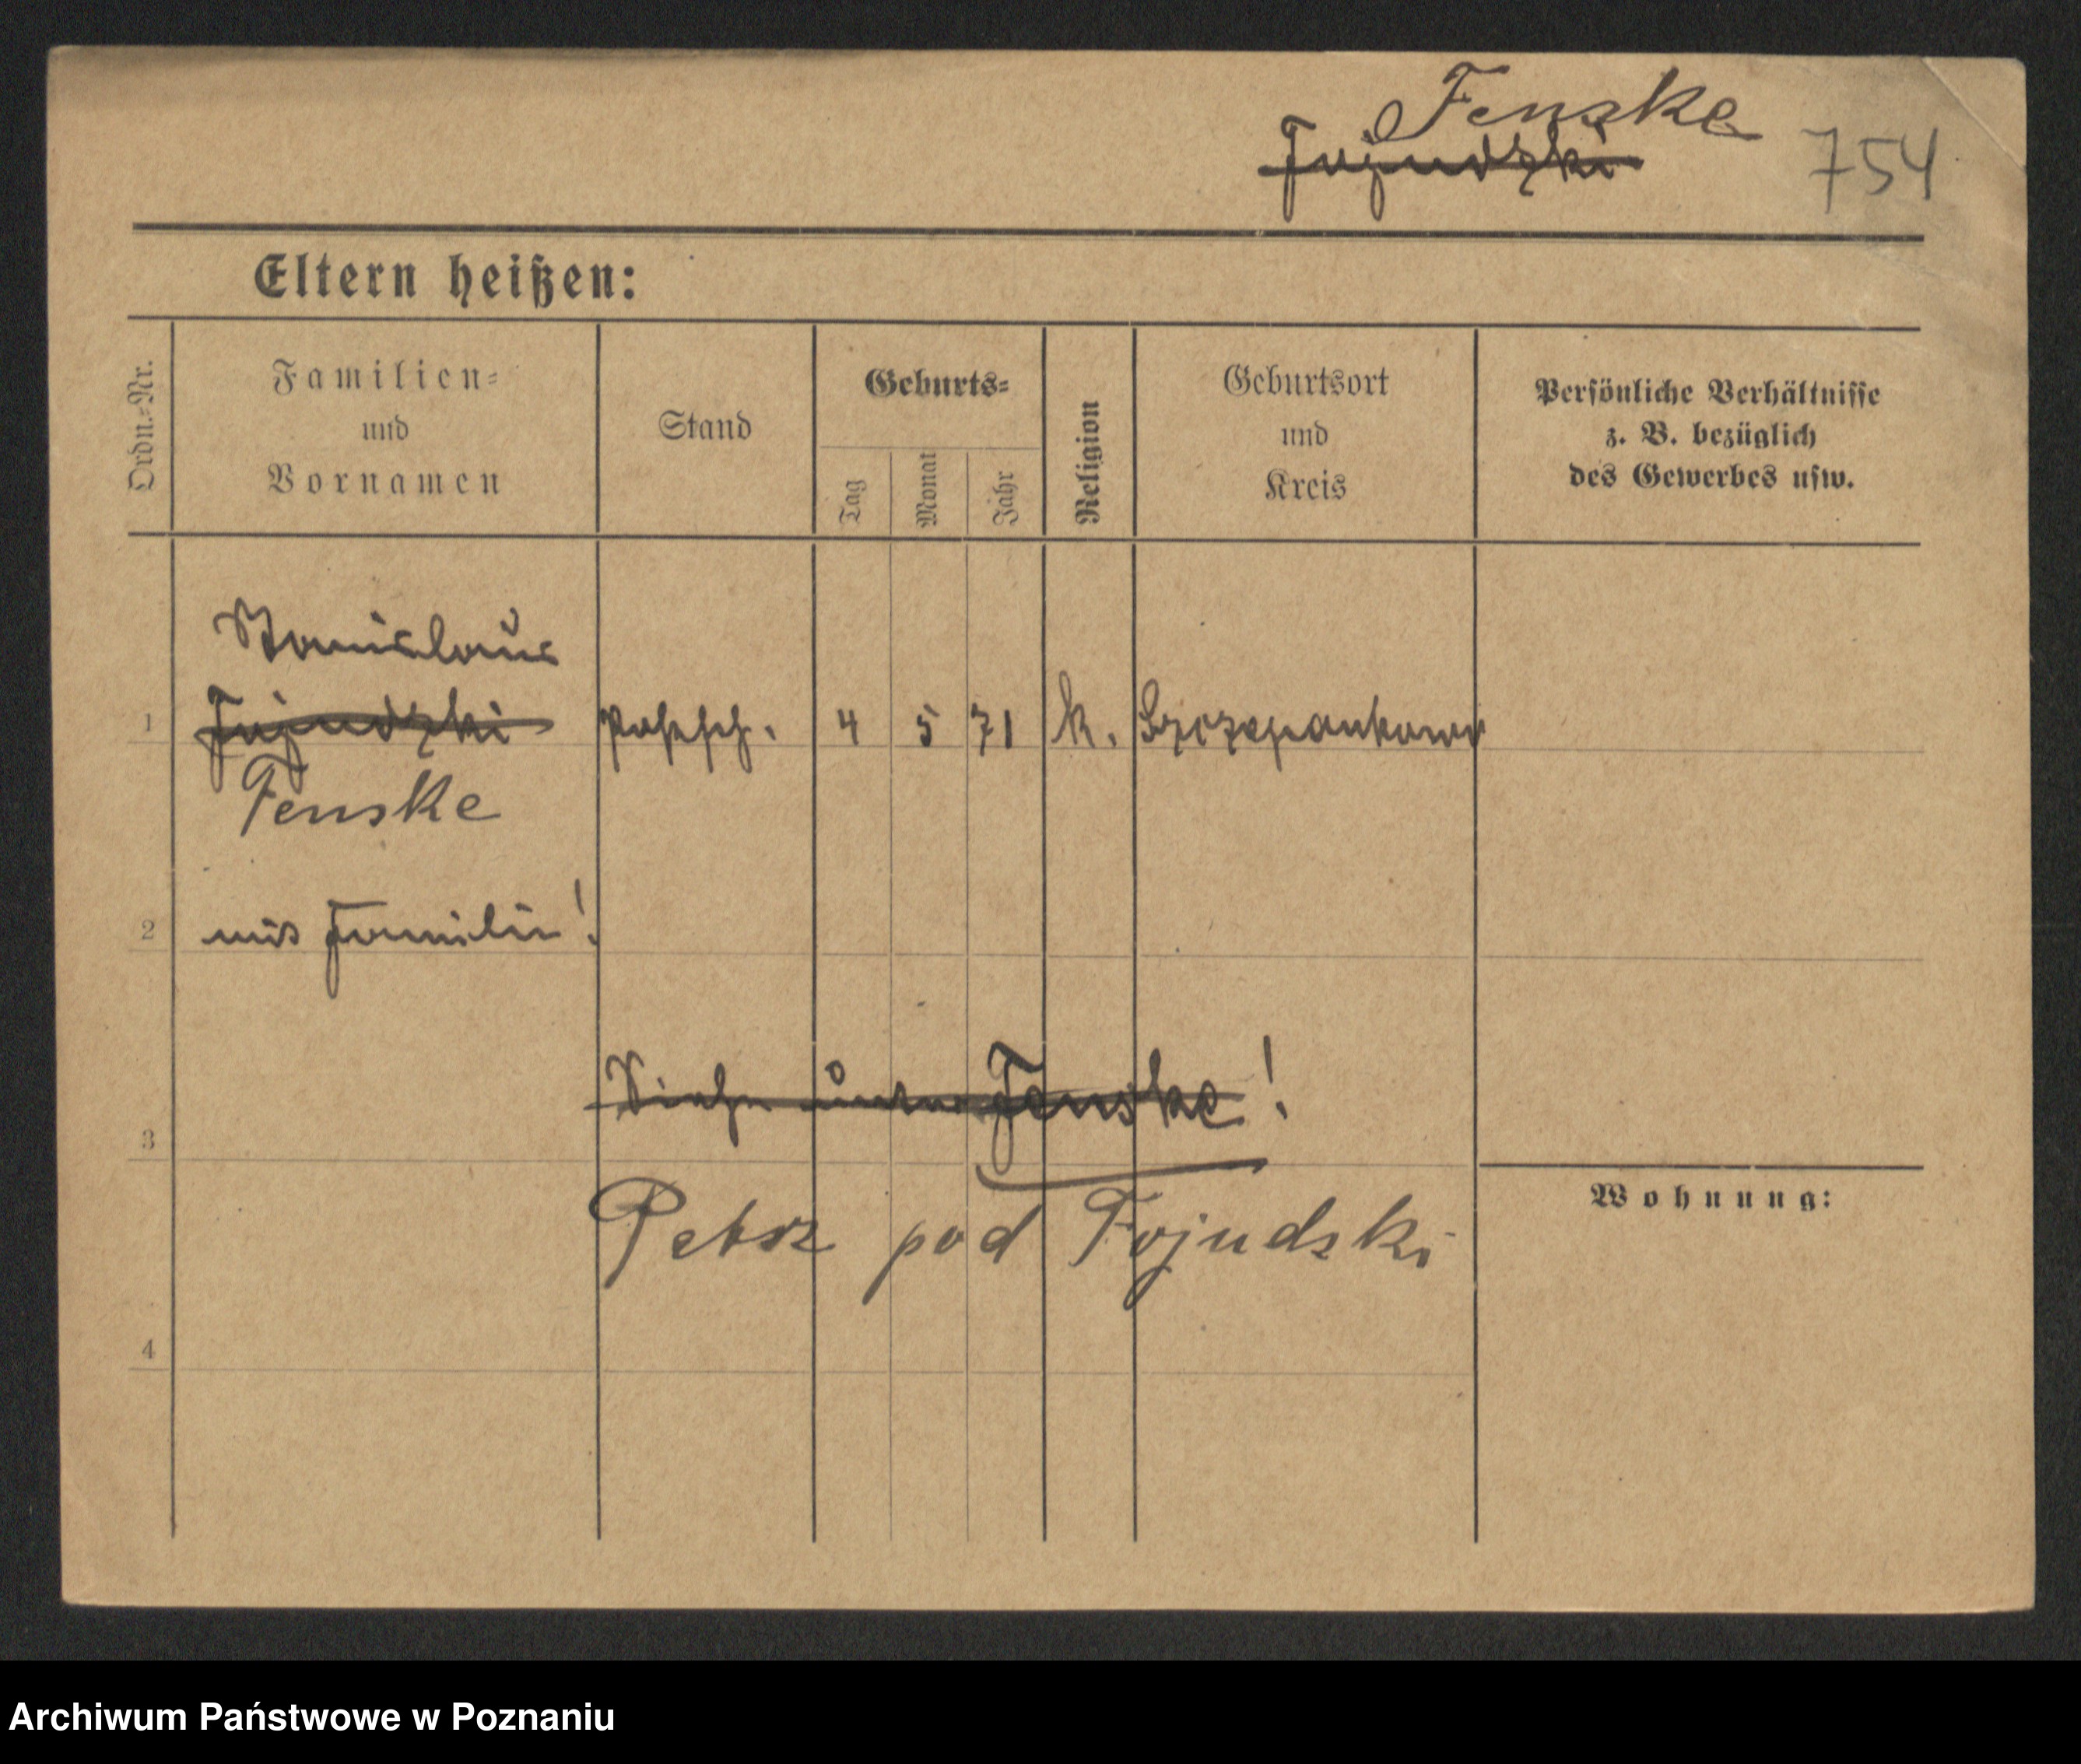 Fenske
Fojudzki 754
Eltern heißen:
Ordn.-Nr.
Familien-
und
Vornamen
Stand
Geburts-
Tag
Monat
Jahr
Religion
Geburtsort
und
Kreis
Persönliche Verhältnisse
z. B. bezüglich
des Gewerbes usw.
Stanislaus
1 Fojudzki 4 5 71 k. Szczepankowo
Fenske
2 mit Familie!
Siehe unter Fenske!
3
Wohnung:
Patrz pod Fojudski
4
Archiwum Państwowe w Poznaniu